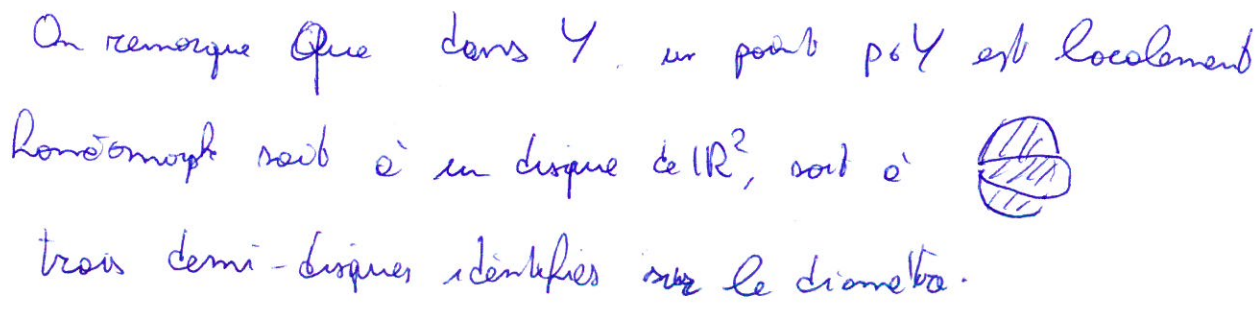 On remarque Que dans Y un point p∈Y est localement
homéomorph soit à un disque de ℝ², soit à
trois demi-disques identifiés sur le diamètre.